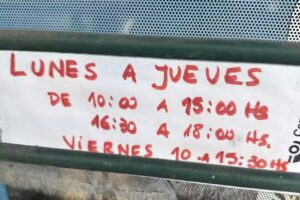 LUNES A JUEVES
DE 10:00 A 15:00 HS
16:30 A 18:00 HS.
VIERNES 10 A 15:30 HS